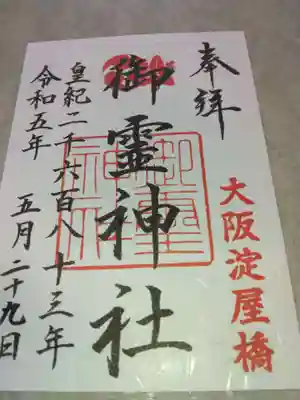 奉拝
大阪淀屋橋
御霊神社
皇紀二千六百八十三年
令和五年 五月二十九日